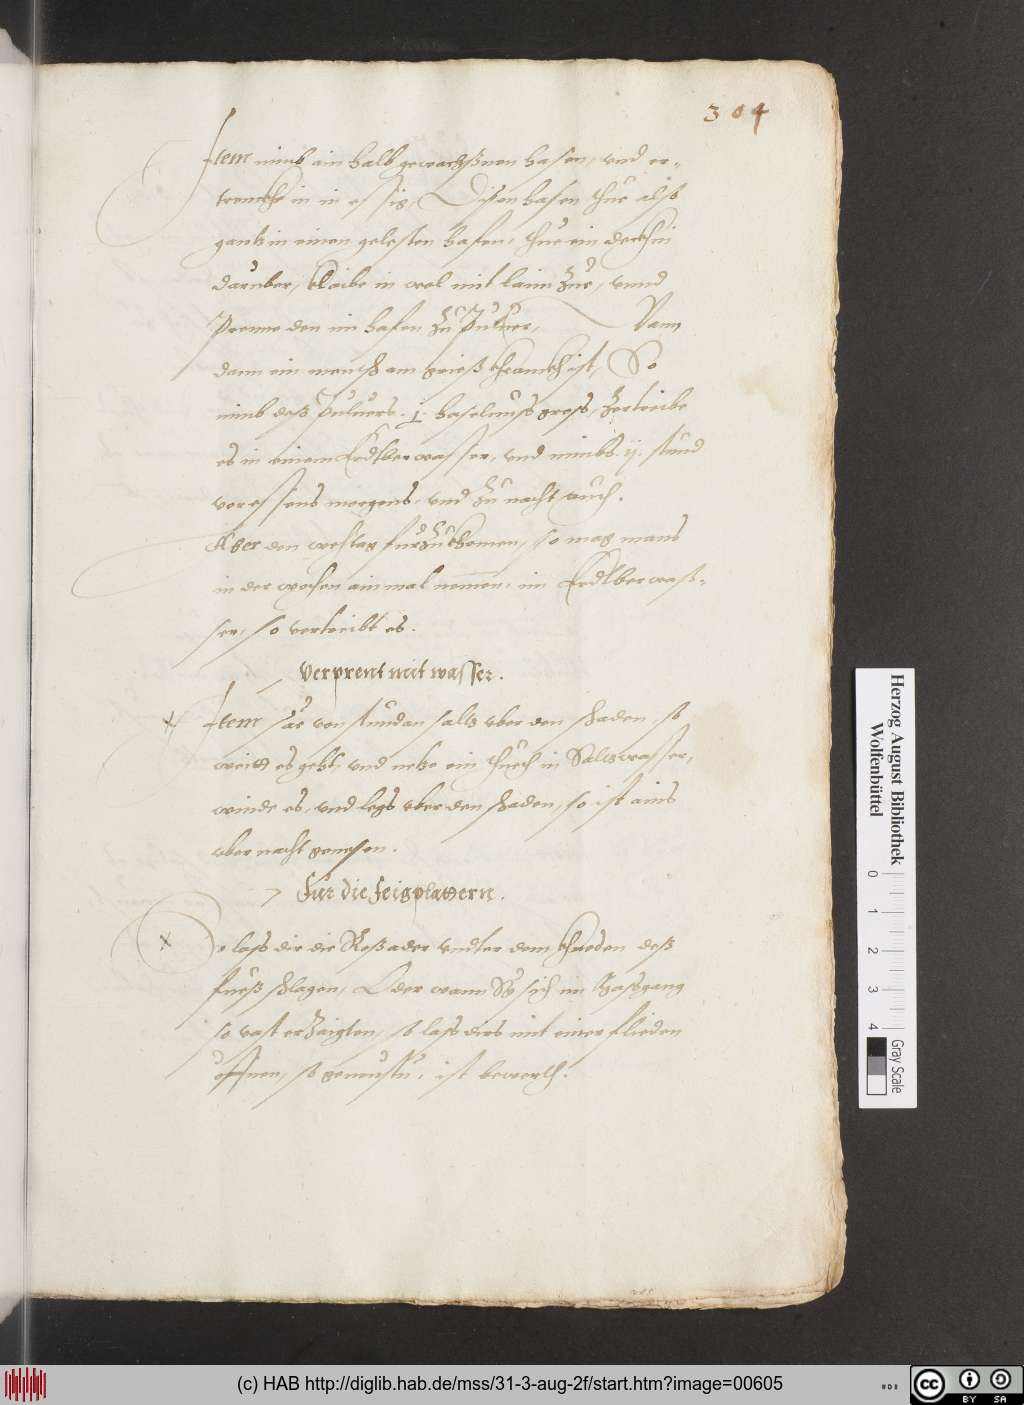 304
Item nimb ain halb gewachßnen hasen, vnd er-
trenckhe in in essig, Disen hasen thue alß
gantz in einen glesten hafen, thue ein deckhin
daruber, kleibe in wol mit laim zue, vnnd
Prenne den im hafen zu Puluer, Vann
dann ein mensch am grieß khranckh ist, So
nimb deß puluers .j. haselnuss gross, zertreibe
es in einem Erdtberwasser, vnd nimbs .ij. stund
vor essens morgens, vnd zu nacht auch.
Aber den wehtag furzukhomen, so mag mans
in der wochen ain mal nemen, im Erdtberwaß-
ser, so vertreibt es.
Verprent mit wasser.
Item säe von stundan saltz vber den schaden, so
weitt es geht, vnd netze ein thuech in Saltzwasser,
winde es, vnd legs vber den schaden, so ist ains
vber nacht genesen.
Für die Feigplattern.
So lass dir die Roßader vndter dem khnoden deß
fueß schlagen, Oder wann Sy sich im
so vast erzaigten, so lass dirs mit einer flieden
offnen, so geneustu, ist bewerth.
Herzog August Bibliothek
Wolfenbüttel
0 1 2 3 4
Gray Scale
(c) HAB http://diglib.hab.de/mss/31-3-aug-2f/start.htm?image=00605
cc BY SA